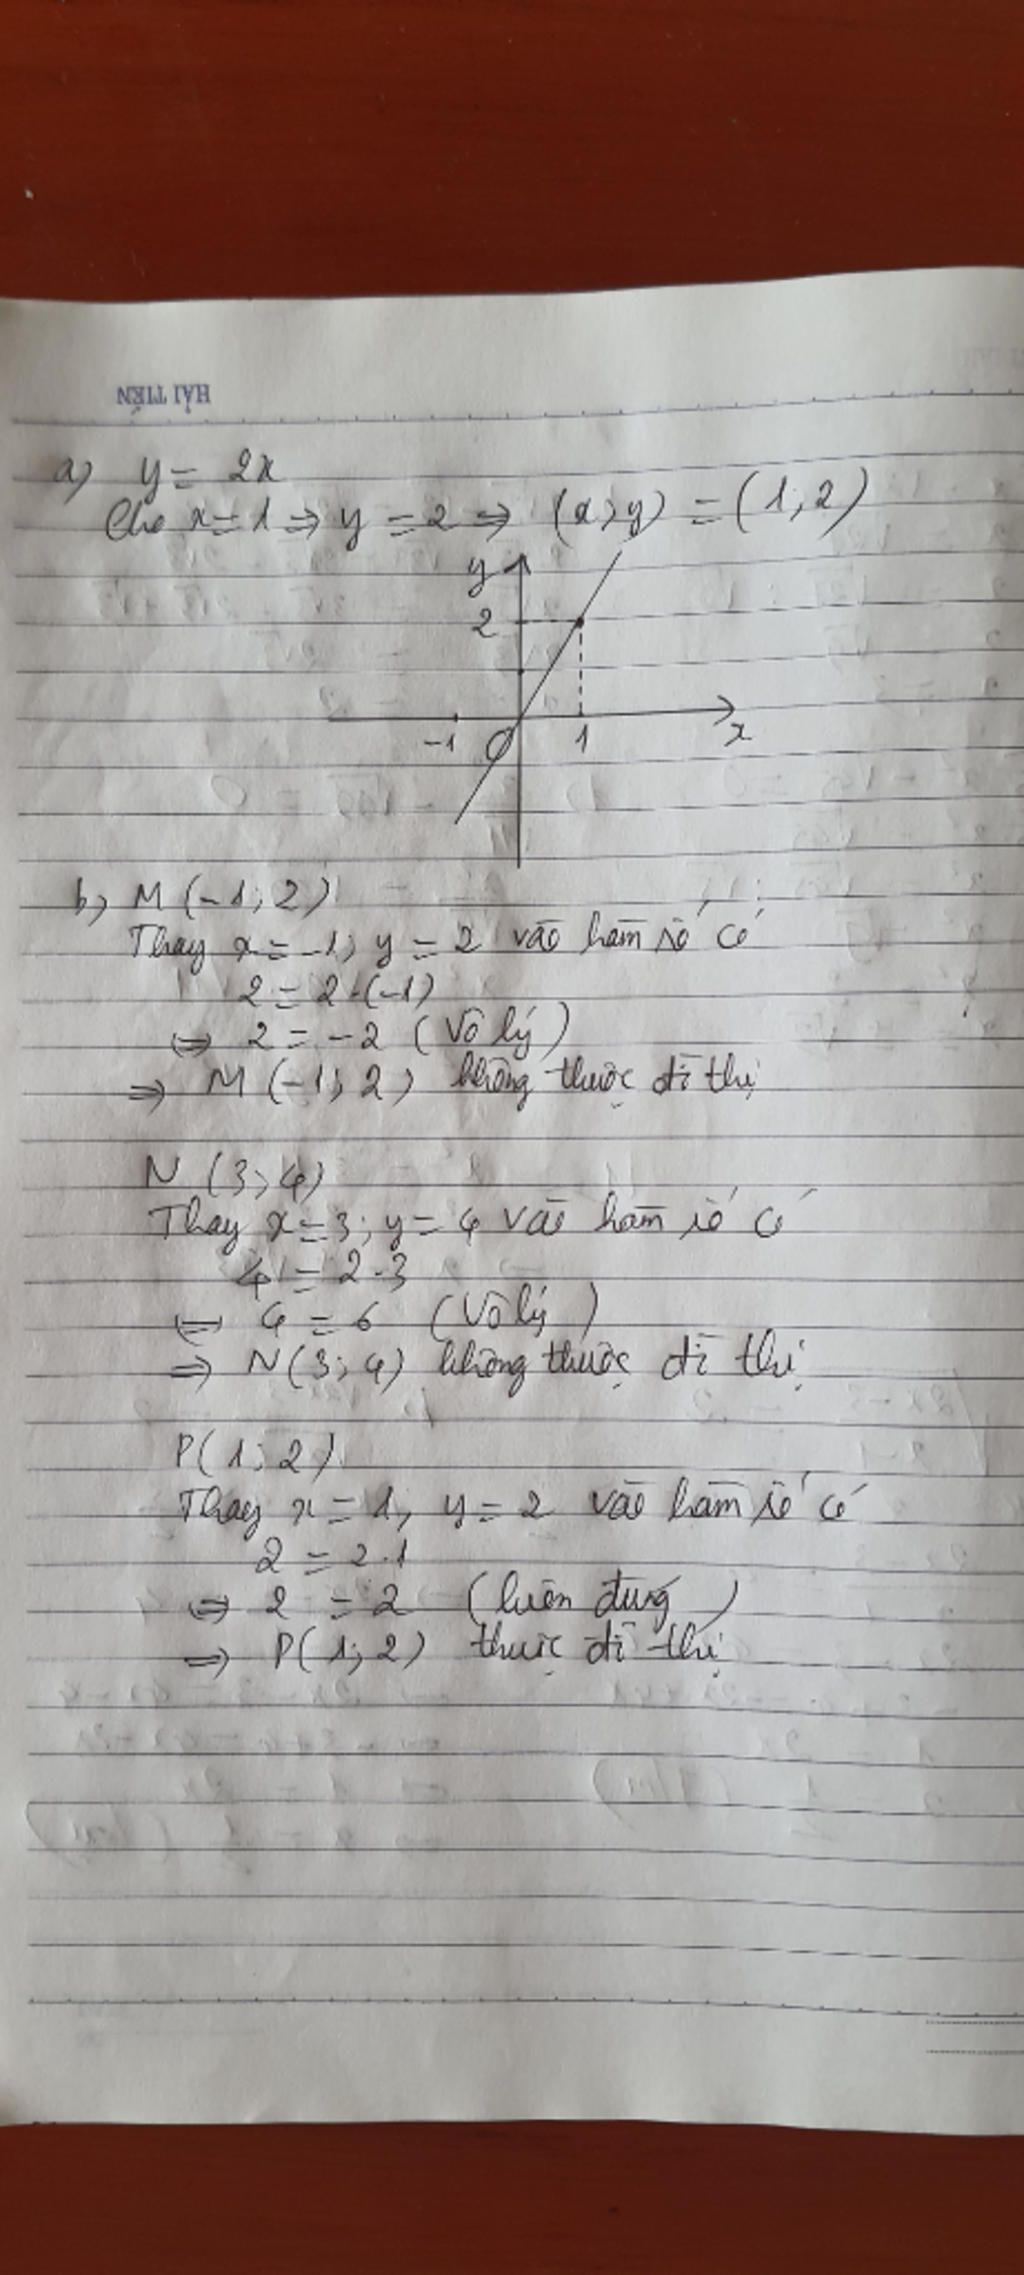 HẢI TIẾN
a) y = 2x
Cho x = 1 => y = 2 => (x; y) = (1; 2)
y
2
-1 O 1 x
b) M (-1; 2)
Thay x = -1; y = 2 vào hàm số có
2 = 2.(-1)
<=> 2 = -2 (Vô lý)
=> M (-1; 2) không thuộc đồ thị
N (3; 4)
Thay x = 3; y = 4 vào hàm số có
4 = 2.3
<=> 4 = 6 (Vô lý)
=> N (3; 4) không thuộc đồ thị
P (1; 2)
Thay x = 1, y = 2 vào hàm số có
2 = 2.1
<=> 2 = 2 (luôn đúng)
=> P (1; 2) thuộc đồ thị